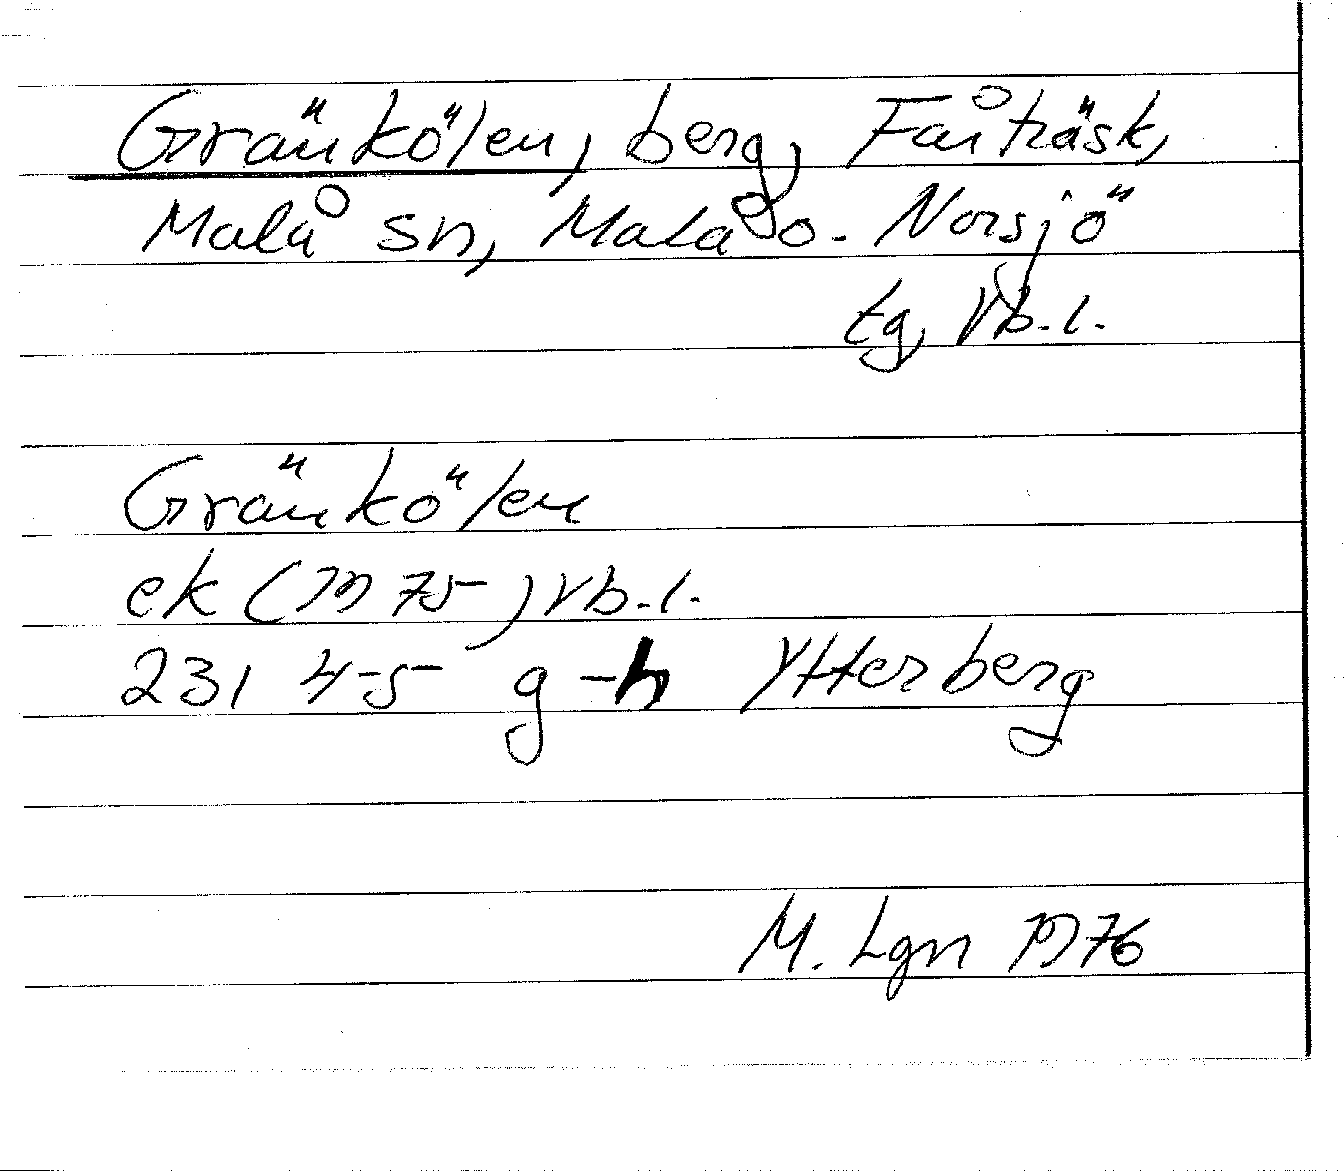 Gränkölen, berg, Fårträsk,
Malå sn, Malå o. Norsjö
tg, Vb.l.
Gränkölen
ek (1975) Vb.l.
231 4-5 g-h Ytterberg
M. Lgn 1976